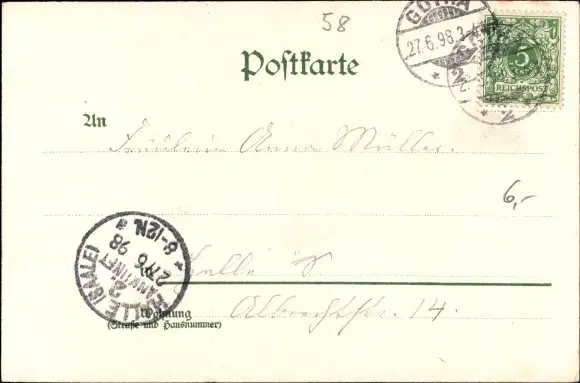 58
GOTHA
27.6.98.3-4N.
5
REICHSPOST
Postkarte
An
Fräulein Anna Müller.
6,-
HALLE (SAALE)
ANKUNFT
2.
27/6 98
6-12N.
Halle S.
Albrechtstr. 14.
Wohnung
(Straße und Hausnummer)